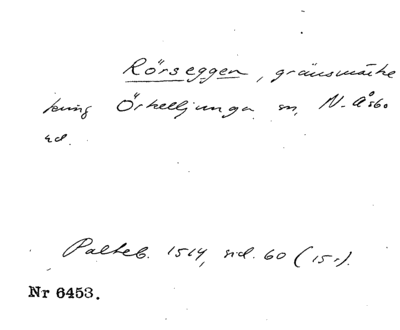 Rörseggen, gränsmärke
kring Örkelljunga sn, N. Åsbo
hd.
Palteb. 1514, sid. 60 (15r).
Nr 6453.